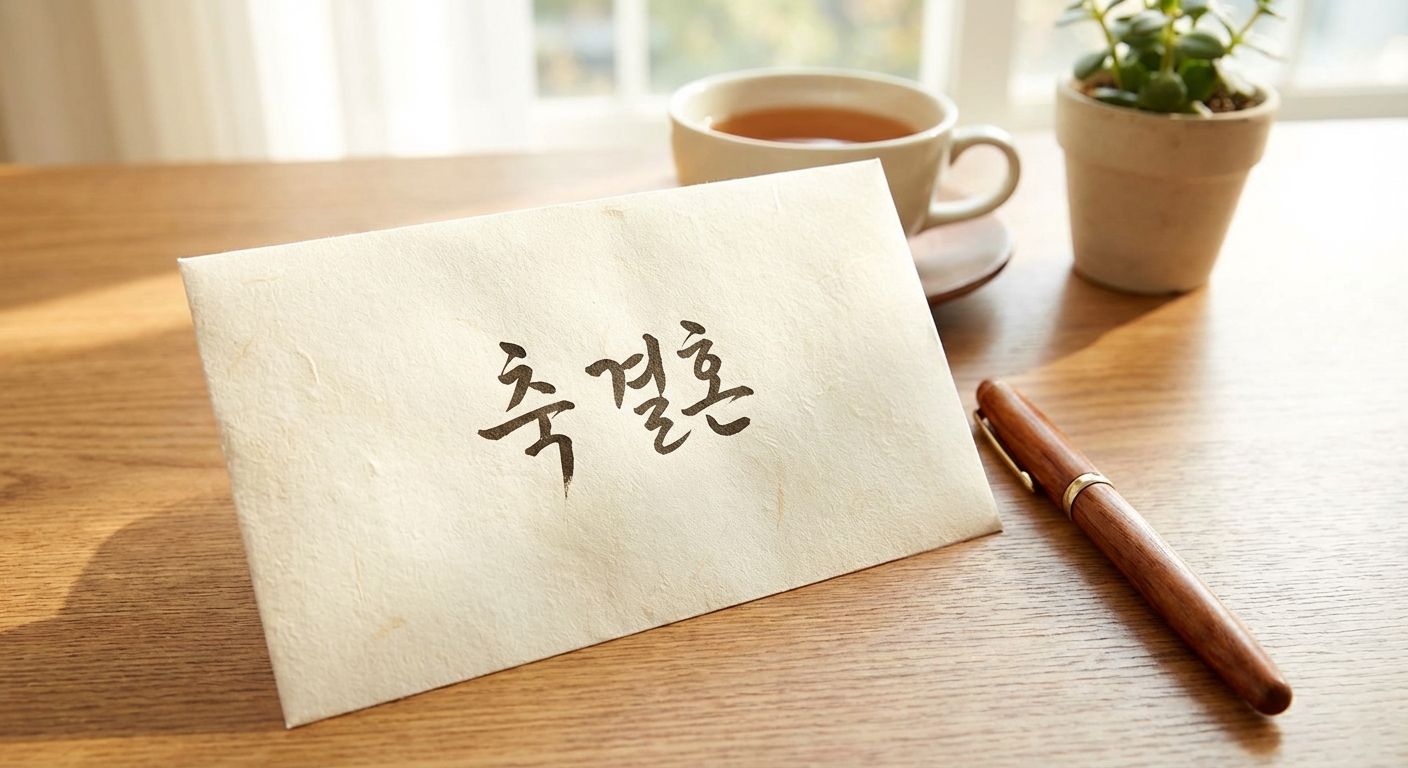 축 결혼